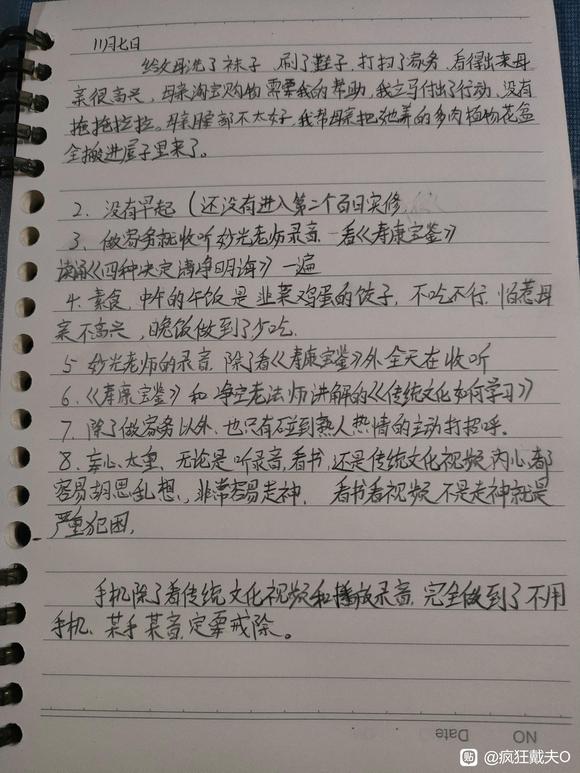 11月七日
给父母洗了袜子，刷了鞋子，打扫了家务，看得出来母
亲很高兴，母亲淘宝购物需要我的帮助，我立马付出了行动，没有
拖拖拉拉。母亲腰部不太好，我帮母亲把她养的多肉植物花盆
全搬进屋子里来了。
2、没有早起（还没有进入第二个百日实修
3、做家务就收听妙光老师录音、看《寿康宝鉴》
读诵《四种决定清净明诲》一遍
4、素食，中午的午饭是韭菜鸡蛋的饺子，不吃不行，怕惹母
亲不高兴，晚饭做到了少吃.
5 妙光老师的录音，除了看《寿康宝鉴》外全天在收听
6、《寿康宝鉴》和净空老法师讲解的《传统文化如何学习》
7、除了做家务以外，也只有碰到熟人热情的主动打招呼。
8、妄心太重，无论是听录音，看书，还是传统文化视频，内心都
容易胡思乱想，非常容易走神，看书看视频不是走神就是
严重犯困，
手机除了看传统文化视频和播放录音，完全做到了不用
手机、某手某音，定要戒除。
NO
Date
贴 @疯狂戴夫O